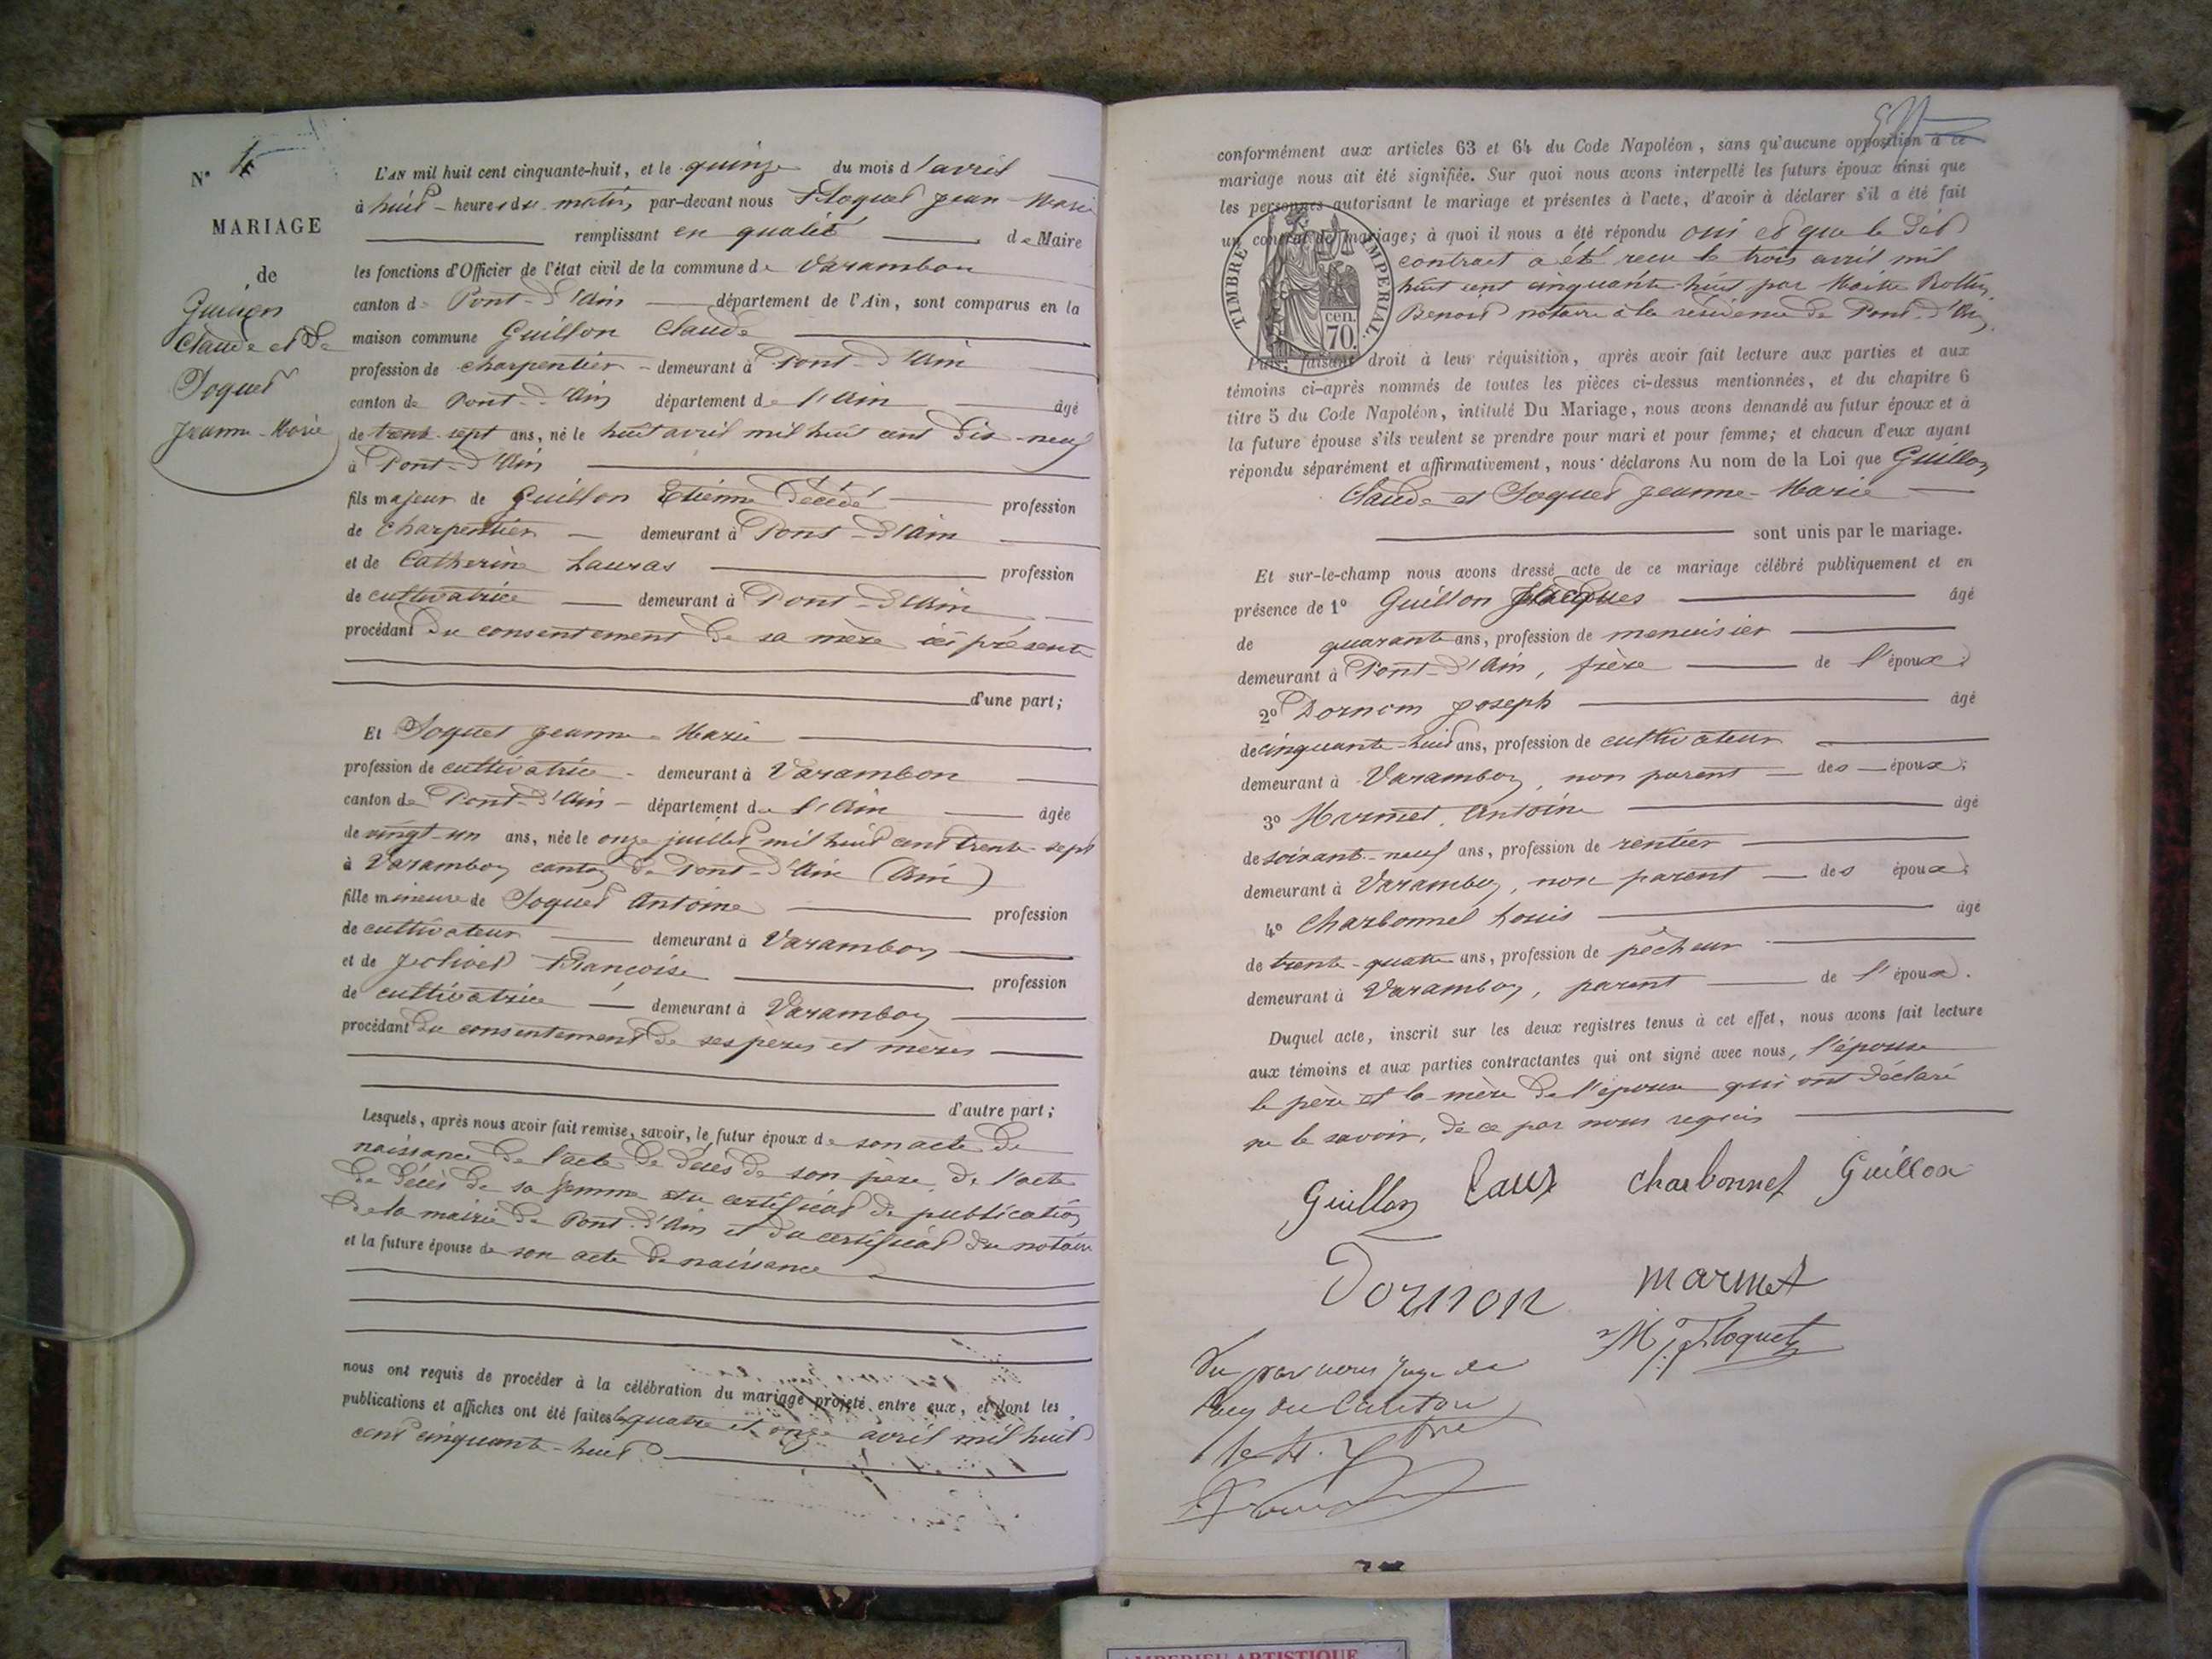 N° 4
MARIAGE
de
Guillon
Claude et de
Joguet
Jeanne-Marie
L'AN mil huit cent cinquante-huit, et le quinze du mois d'avril
à huit heures du matin, par-devant nous Floquet Jean-Marie
remplissant en qualité de Maire
les fonctions d'Officier de l'état civil de la commune de Varambon
canton de Pont-d'Ain département de l'Ain, sont comparus en la
maison commune Guillon Claude
profession de charpentier demeurant à Pont-d'Ain
canton de Pont-d'Ain département de l'Ain âgé
de trente-sept ans, né le huit avril mil huit cent dix-neuf
à Pont-d'Ain
fils majeur de Guillon Etienne décédé profession
de charpentier demeurant à Pont-d'Ain
et de Catherine Lauras profession
de cultivatrice demeurant à Pont-d'Ain
procédant du consentement de sa mère ici présente
d'une part;
Et Joguet Jeanne-Marie
profession de cultivatrice demeurant à Varambon
canton de Pont-d'Ain département de l'Ain âgée
de vingt-un ans, née le onze juillet mil huit cent trente-sept
à Varambon canton de Pont-d'Ain (Ain)
fille mineure de Joguet Antoine profession
de cultivateur demeurant à Varambon
et de Jolivet Françoise profession
de cultivatrice demeurant à Varambon
procédant du consentement de ses pères et mères
d'autre part;
Lesquels, après nous avoir fait remise, savoir, le futur époux de son acte de
naissance de l'acte de décès de son père, de l'acte
de décès de sa femme et du certificat de publication
de la mairie de Pont-d'Ain et du certificat du notaire
et la future épouse de son acte de naissance
nous ont requis de procéder à la célébration du mariage projeté entre eux, et dont les
publications et affiches ont été faites le quatre et onze avril mil huit
cent cinquante-huit
conformément aux articles 63 et 64 du Code Napoléon, sans qu'aucune opposition à ce
mariage nous ait été signifiée. Sur quoi nous avons interpellé les futurs époux ainsi que
les personnes autorisant le mariage et présentes à l'acte, d'avoir à déclarer s'il a été fait
un contrat de mariage; à quoi il nous a été répondu oui et que le dit
contract a été reçu le trois avril mil
huit cent cinquante-huit par Maitre Rollin
Benoit notaire à la résidence de Pont-d'Ain
TIMBRE IMPERIAL
cen.
70.
Puis, faisant droit à leur réquisition, après avoir fait lecture aux parties et aux
témoins ci-après nommés de toutes les pièces ci-dessus mentionnées, et du chapitre 6
titre 5 du Code Napoléon, intitulé Du Mariage, nous avons demandé au futur époux et à
la future épouse s'ils veulent se prendre pour mari et pour femme; et chacun d'eux ayant
répondu séparément et affirmativement, nous déclarons Au nom de la Loi que Guillon
Claude et Joguet Jeanne-Marie
sont unis par le mariage.
Et sur-le-champ nous avons dressé acte de ce mariage célébré publiquement et en
présence de 1° Guillon Jacques âgé
de quarante ans, profession de menuisier
demeurant à Pont-d'Ain, frère de l'époux;
2° Dornon Joseph âgé
de cinquante-huit ans, profession de cultivateur
demeurant à Varambon, non parent des époux;
3° Marmet Antoine âgé
de soixante-neuf ans, profession de rentier
demeurant à Varambon, non parent des époux;
4° Charbonnet Louis âgé
de trente-quatre ans, profession de pêcheur
demeurant à Varambon, parent de l'époux.
Duquel acte, inscrit sur les deux registres tenus à cet effet, nous avons fait lecture
aux témoins et aux parties contractantes qui ont signé avec nous, l'épouse
le père et la mère de l'épouse qui ont déclaré
ne le savoir, de ce par nous requis
Guillon Charbonnet Guillon
Dornon marmet
Floquet
Vu par nous Juge de
Paix du Canton
AMBERIEU ARTISTIQUE